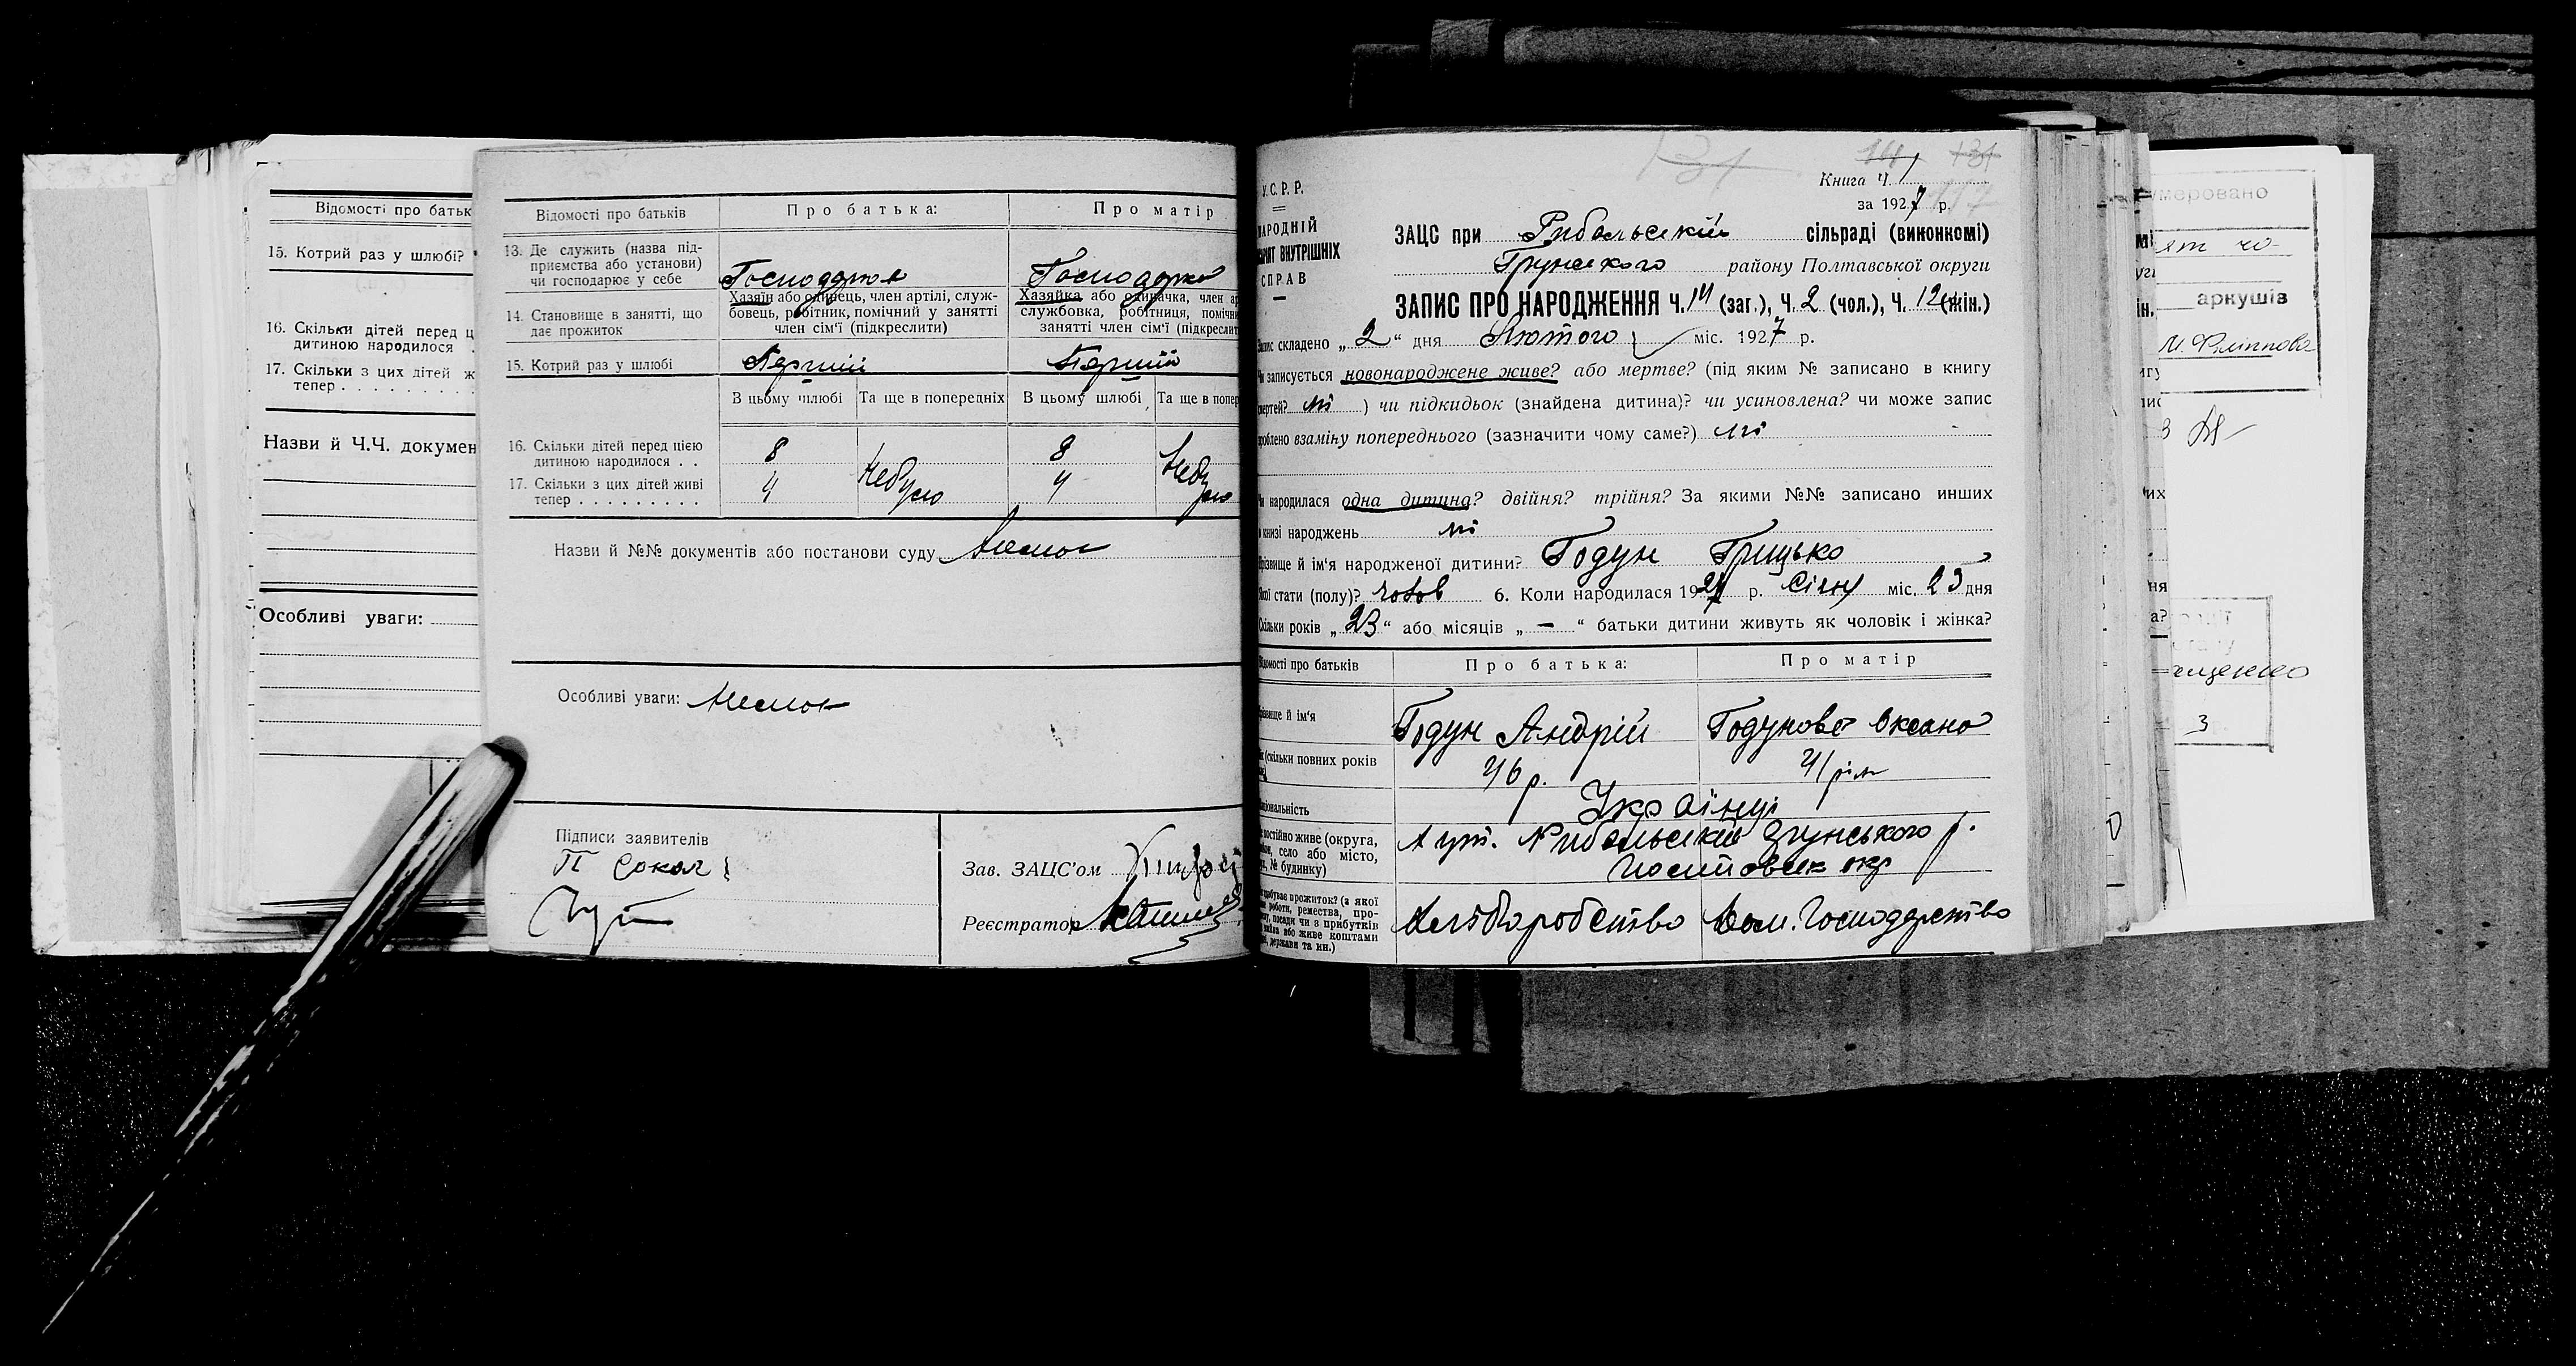 Відомості про батьк
15. Котрий раз у шлюбі?
16. Скільки дітей перед ц
дитиною народилося .
17. Скільки з цих дітей ж
тепер . . . . . . . .
Назви й Ч.Ч. докумен
Особливі уваги:
Відомості про батьків
Про батька:
Про матір
13. Де служить (назва під-
приємства або установи)
чи господарює у себе
Господарює
Господарює
14. Становище в занятті, що
дає прожиток
Хазяїн або одинець, член артілі, служ-
бовець, робітник, помічний у занятті
член сім'ї (підкреслити)
Хазяйка або одиначка, член ар
службовка, робітниця, помічн
занятті член сім'ї (підкреслит
15. Котрий раз у шлюбі
Перший
Перший
В цьому шлюбі
Та ще в попередніх
В цьому шлюбі
Та ще в попер
16. Скільки дітей перед цією
дитиною народилося . .
8
Небуло
8
Небуло
17. Скільки з цих дітей живі
тепер . . . . . . . . .
4
4
Назви й №№ документів або постанови суду Немає
Особливі уваги: Немає
Підписи заявителів
П Сокол
Зав. ЗАЦС'ом
Реєстратор
У.С.Р.Р.
НАРОДНІЙ
ВНУТРІШНІХ
СПРАВ
131
131
Книга Ч. 1
за 1927 р.
ЗАЦС при Рибальській сільраді (виконкомі)
Грунського району Полтавської округи
ЗАПИС ПРО НАРОДЖЕННЯ Ч. 14 (заг.), Ч. 2 (чол.), Ч. 12 (жін.)
Запис складено „2“ дня Лютого міс. 1927 р.
записується новонароджене живе? або мертве? (під яким № записано в книгу
смертей? ні ) чи підкидьок (знайдена дитина)? чи усиновлена? чи може запис
зроблено взаміну попереднього (зазначити чому саме?) ні
народилася одна дитина? двійня? трійня? За якими №№ записано инших
книзі народжень ні
Прізвище й ім'я народженої дитини? Годун Грицько
Якої стати (полу)? чолов 6. Коли народилася 1927 р. Січня міс. 23 дня
Скільки років „23“ або місяців „—“ батьки дитини живуть як чоловік і жінка?
Відомості про батьків
Про батька:
Про матір
Прізвище й ім'я
Годун Андрій
Годунова Оксана
(скільки повних років
46 р.
41 рік
національність
Українці
постійно живе (округа,
село або місто,
№ будинку)
хут. Рибальський Грунського р.
Полтавськ окр
прожиток? (з якої
роботи, ремества, про-
посади чи з прибутків
або живе коштами
держави та ин.)
Хліборобство
Дом. Господарство
умеровано
аркушів
М. Філіппова
3